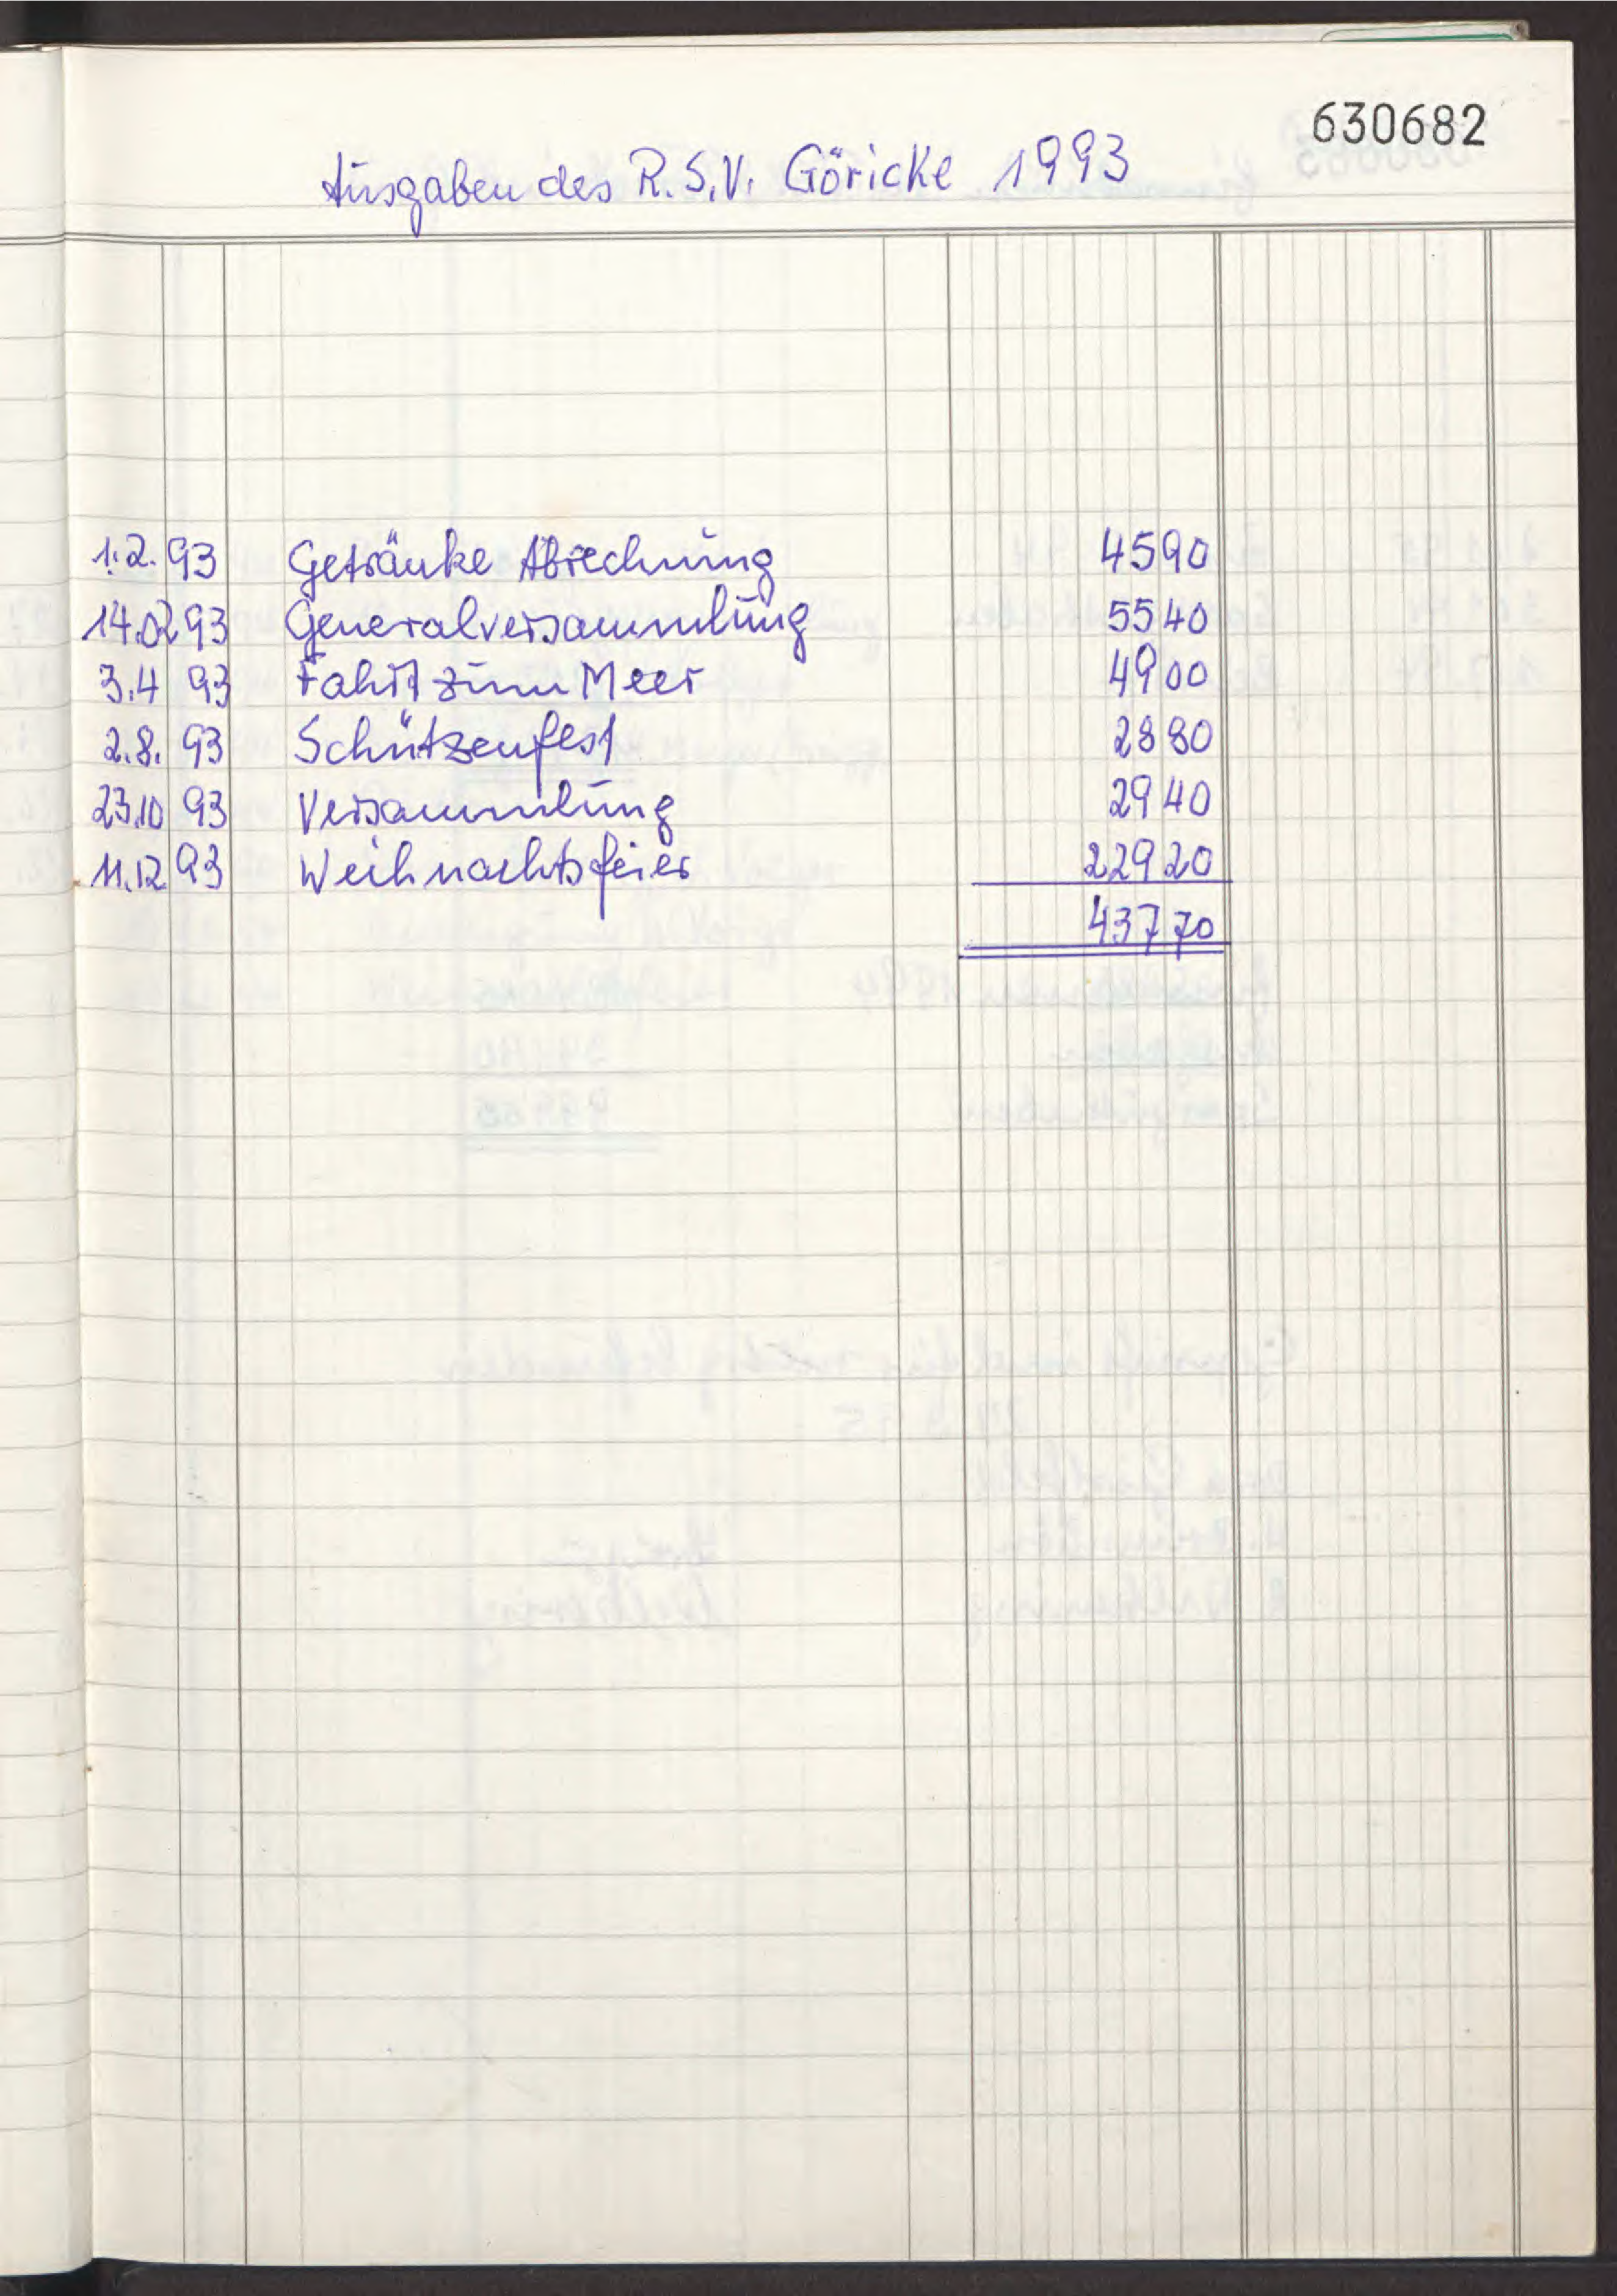 630682
Ausgaben des R.S.V. Göricke 1993
1.2. 93 Getränke Abrechnung 4590
14.02 93 Generalversammlung 5540
3.4 93 Fahrt zum Meer 4900
2.8. 93 Schützenfest 2880
23.10 93 Versammlung 2940
11.12. 93 Weihnachtsfeier 22920
43770